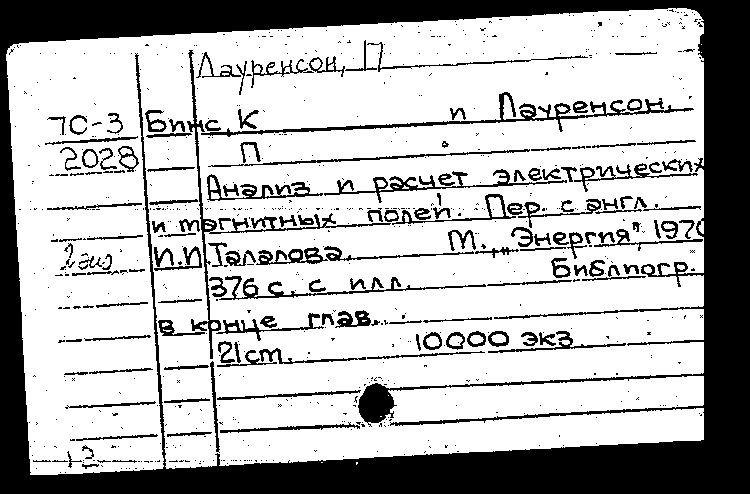 Лауренсон, П
7С-3 Бинс, К и Лауренсон,
2028 П
Анализ и расчет электрических
и магнитных полей. Пер. с англ.
2 экз И.И Талалова. М., „Энергия", 1970
376 с. с илл. Библиогр.
в конце глав.
21 ст. 10000 экз